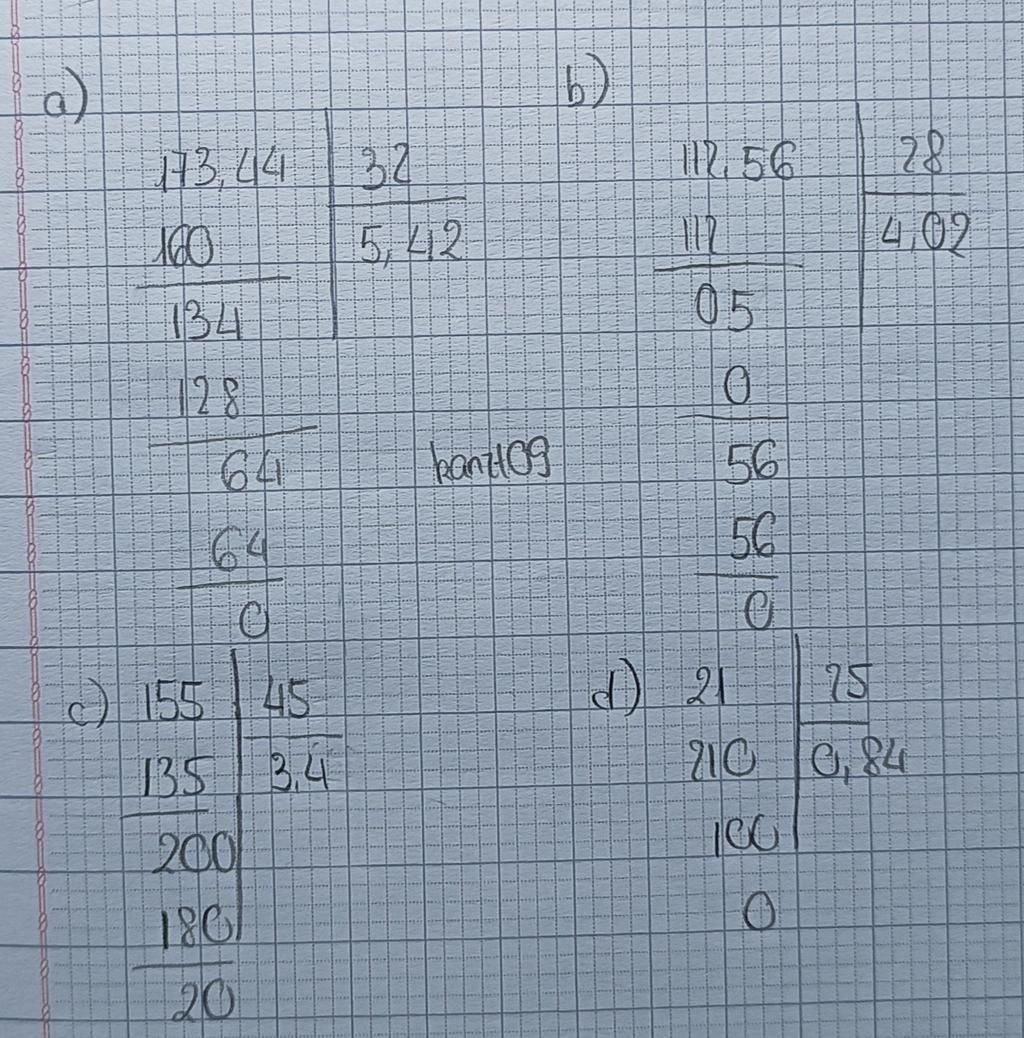 a)
173,44 32
160 5,42
134
128
64
64
0
b)
112,56 28
112 4,02
05
0
56
56
0
c) 155 45
135 3,4
200
180
20
d) 21 25
210 0,84
100
0